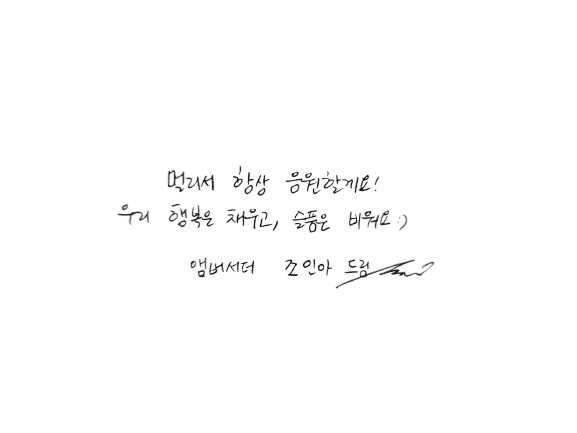 멀리서 항상 응원할게요!
우리 행복은 채우고, 슬픔은 비워요 :)
앰버서더 조인아 드림